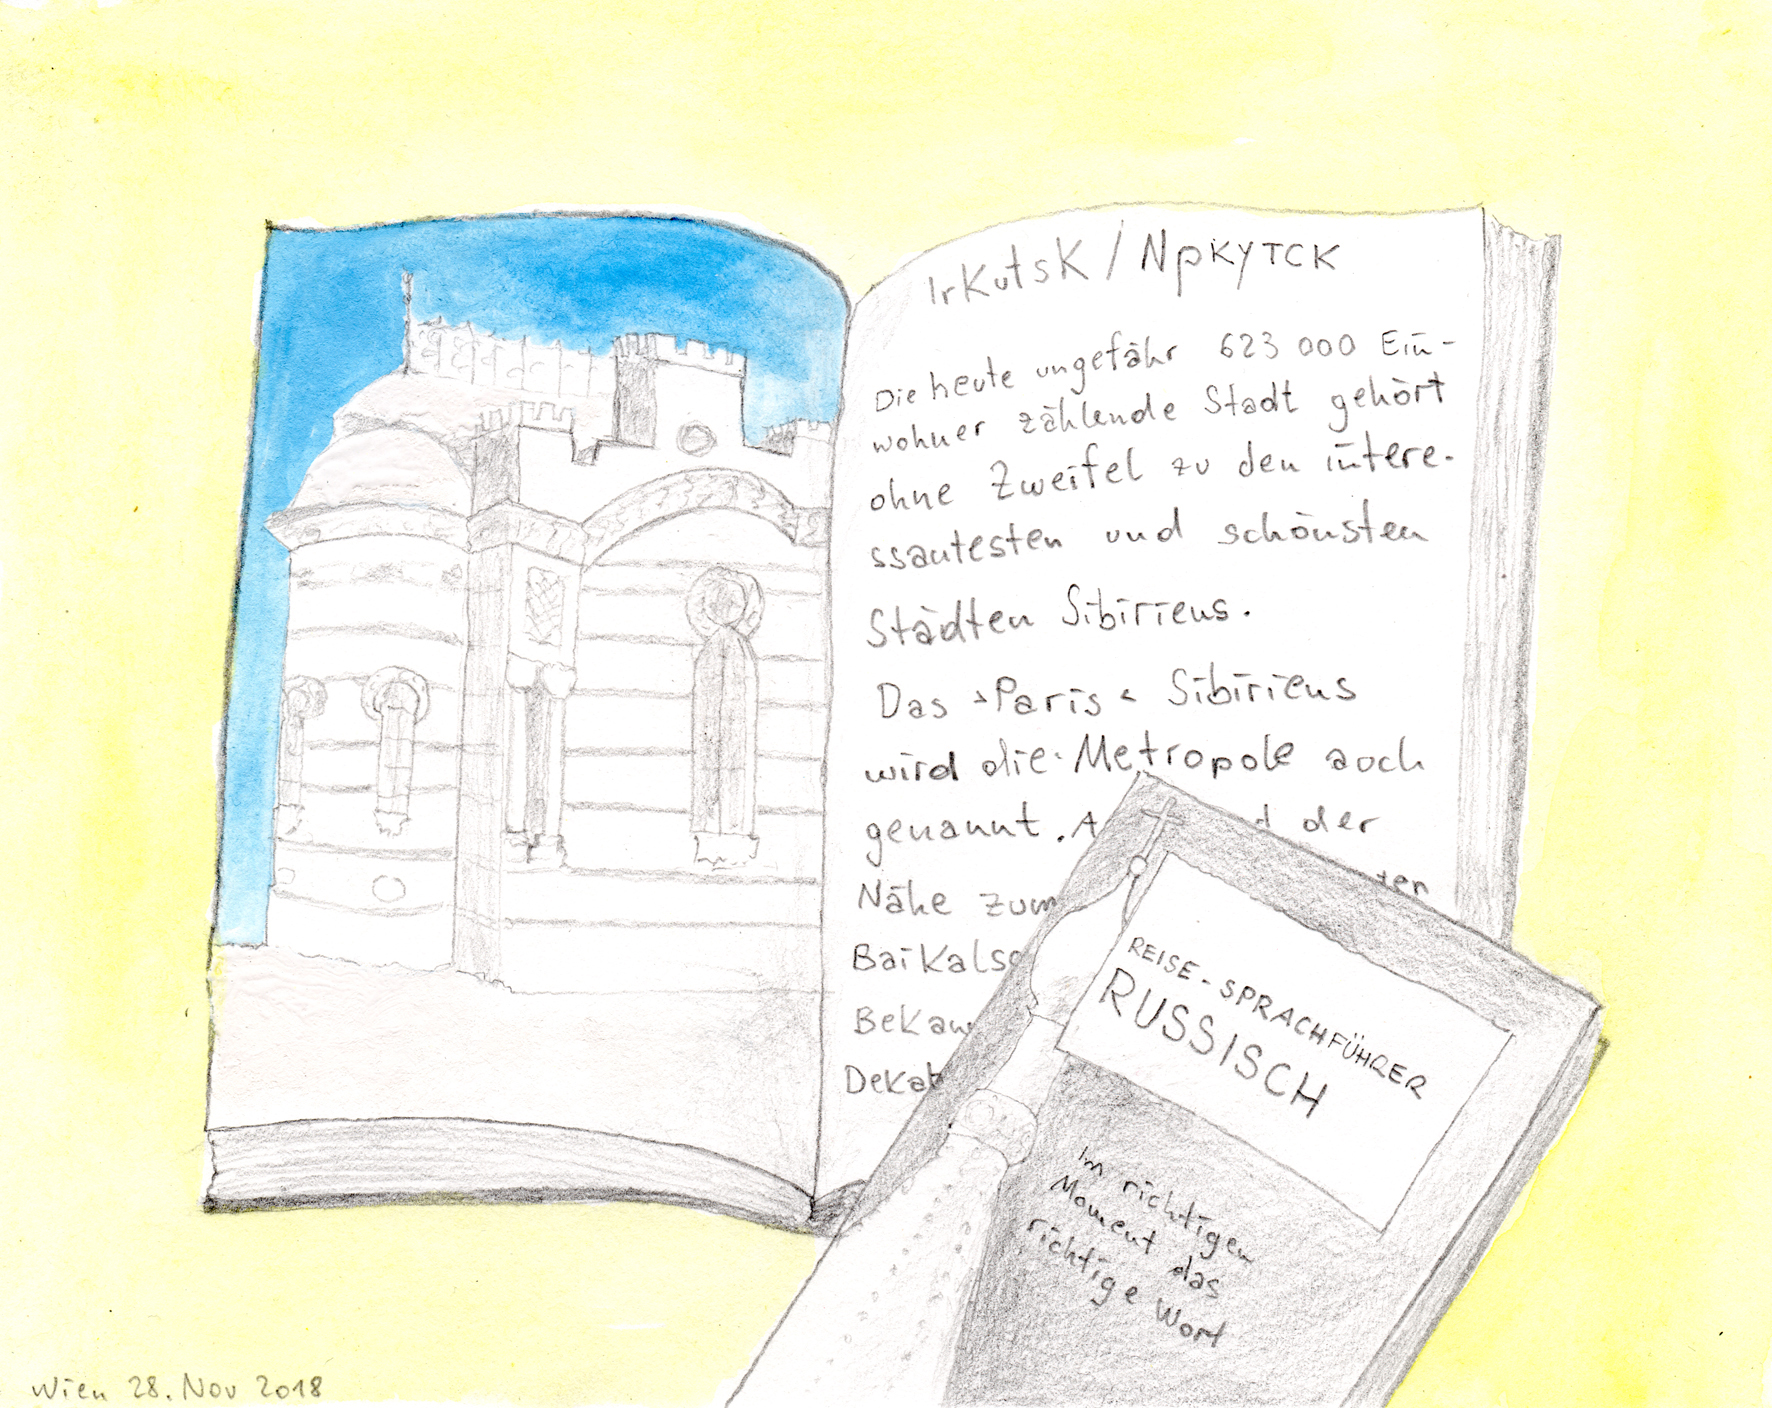 IrKutsK / NpкyтcK
Die heute ungefähr 623 000 Ein-
wohner zählende Stadt gehört
ohne Zweifel zu den intere-
ssantesten und schönsten
Städten Sibiriens.
Das »Paris« Sibiriens
wird die Metropole auch
genannt. A d der
Nähe zum ten
BaiKalse
BeKan
DeKab
REISE-SPRACHFÜHRER
RUSSISCH
Im richtigen
Moment das
richtige Wort
Wien 28. Nov 2018